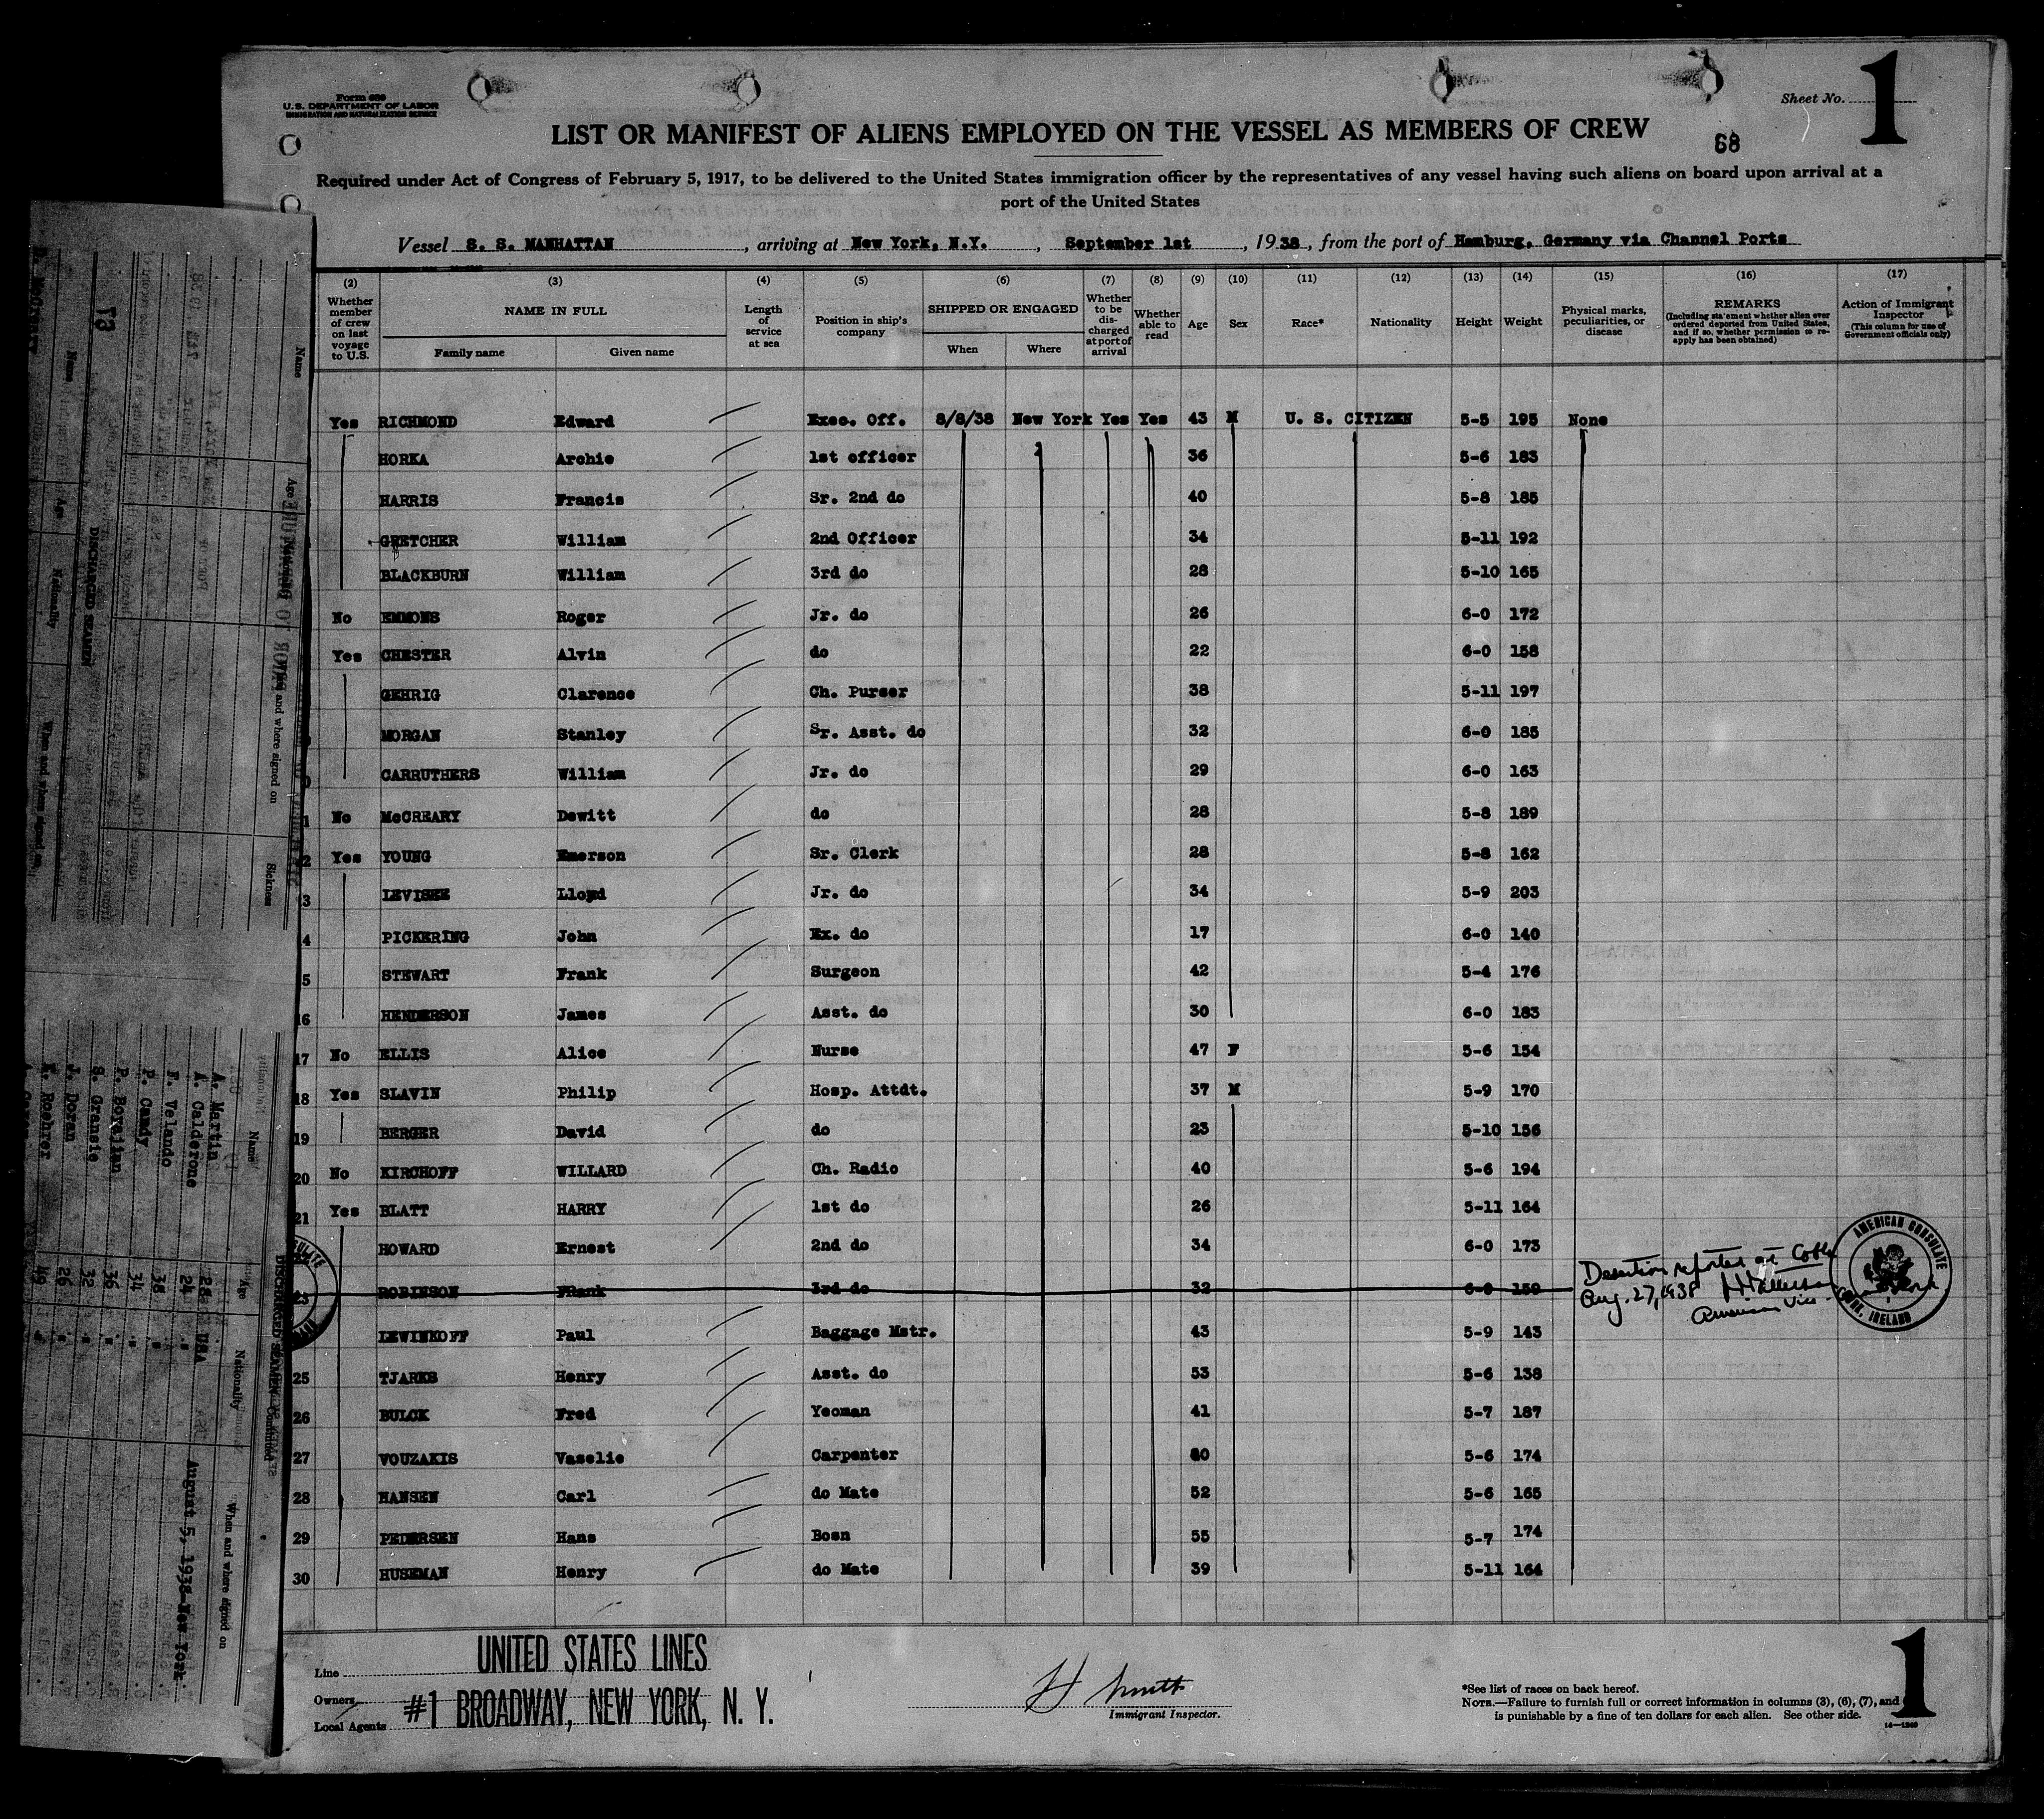 Form 689
U.S. DEPARTMENT OF LABOR
IMMIGRATION AND NATURALIZATION SERVICE
Sheet No. 1
LIST OR MANIFEST OF ALIENS EMPLOYED ON THE VESSEL AS MEMBERS OF CREW
68
Required under Act of Congress of February 5, 1917, to be delivered to the United States immigration officer by the representatives of any vessel having such aliens on board upon arrival at a
port of the United States
Vessel S. S. MANHATTAN, arriving at New York, N.Y., September 1st, 1938, from the port of Hamburg, Germany via Channel Ports
(2) (3) (4) (5) (6) (7) (8) (9) (10) (11) (12) (13) (14) (15) (16) (17)
Whether member of crew on last voyage to U.S.
NAME IN FULL
Family name Given name
Length of service at sea
Position in ship's company
SHIPPED OR ENGAGED
When Where
Whether to be discharged at port of arrival
Whether able to read
Age
Sex
Race*
Nationality
Height
Weight
Physical marks, peculiarities, or disease
REMARKS
(Including statement whether alien ever ordered deported from United States, and if so, whether permission to re-apply has been obtained)
Action of Immigrant Inspector
(This column for use of Government officials only)
Yes RICHMOND Edward Exec. Off. 8/8/38 New York Yes Yes 43 M U. S. CITIZEN 5-5 195 None
HORKA Archie 1st officer 36 5-6 183
HARRIS Francis Sr. 2nd do 40 5-8 185
GRETCHER William 2nd Officer 34 5-11 192
BLACKBURN William 3rd do 28 5-10 165
No EMMONS Roger Jr. do 26 6-0 172
Yes CHESTER Alvin do 22 6-0 158
GEHRIG Clarence Ch. Purser 38 5-11 197
MORGAN Stanley Sr. Asst. do 32 6-0 185
CARRUTHERS William Jr. do 29 6-0 163
1 No McCREARY Dewitt do 28 5-8 189
2 Yes YOUNG Emerson Sr. Clerk 28 5-8 162
3 LEVISEE Lloyd Jr. do 34 5-9 203
4 PICKERING John Ex. do 17 6-0 140
5 STEWART Frank Surgeon 42 5-4 176
16 HENDERSON James Asst. do 30 6-0 183
17 No ELLIS Alice Nurse 47 F 5-6 154
18 Yes SLAVIN Philip Hosp. Attdt. 37 M 5-9 170
19 BERGER David do 23 5-10 156
20 No KIRCHOFF WILLARD Ch. Radio 40 5-6 194
21 Yes BLATT HARRY 1st do 26 5-11 164
HOWARD Ernest 2nd do 34 6-0 173
23 ROBINSON FRank 3rd do 32 6-0 159
Desertion reported at Cobh
Aug. 27, 1938
American Vice
AMERICAN CONSULATE
CORK, IRELAND
LEWINKOFF Paul Baggage Mstr. 43 5-9 143
25 TJARKS Henry Asst. do 53 5-6 138
26 BULCK Fred Yeoman 41 5-7 187
27 VOUZAKIS Vaselie Carpenter 5-6 174
28 HANSEN Carl do Mate 52 5-6 165
29 PEDERSEN Hans Bosn 55 5-7 174
30 HUSEMAN Henry do Mate 39 5-11 164
Line UNITED STATES LINES
Owners
Local Agents #1 BROADWAY, NEW YORK, N. Y.
H Smith
Immigrant Inspector.
*See list of races on back hereof.
NOTE.—Failure to furnish full or correct information in columns (3), (6), (7), and
is punishable by a fine of ten dollars for each alien. See other side.
1
Name
Age
Nationality
When and where signed on
Sickness
DISCHARGED SEAMEN
73
Name Age Nationality When and where signed on
A. Martin 28 USA August 5, 1938-New York
A. Calderone 24 "
F. Velando 38 "
P. Candy 34 "
P. Borailen 36 "
S. Gransie 32 "
J. Doran 26 "
A. Roehrer 49 "